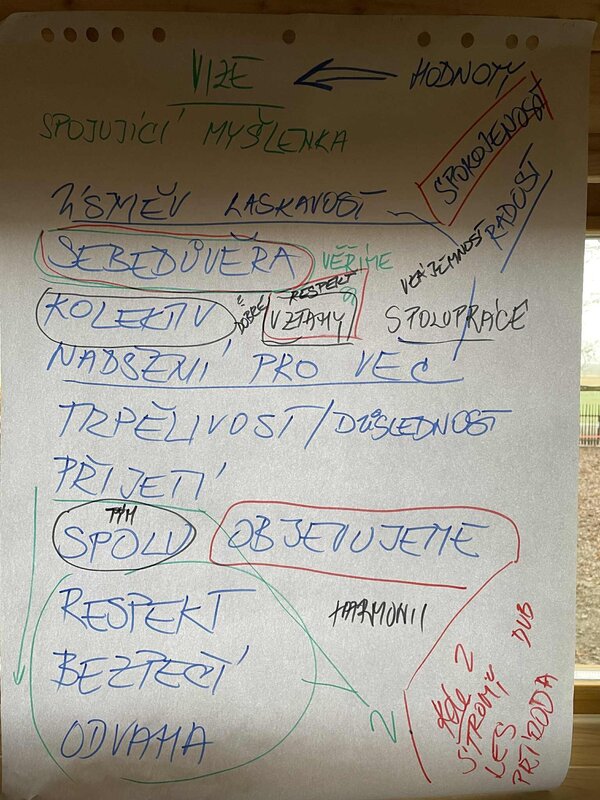 VIZE ← HODNOTY
SPOJUJÍCÍ MYŠLENKA
SPOKOJENOST
ÚSMĚV LASKAVOST
RADOST
SEBEDŮVĚRA VĚŘÍME
VZÁJEMNOST
RESPEKT
KOLEKTIV DOBRÉ VZTAHY SPOLUPRÁCE
NADŠENÍ PRO VĚC
TRPĚLIVOST/DŮSLEDNOST
PŘIJETÍ
TÝM
SPOLU OBJEVUJEME
RESPEKT HARMONII
BEZPEČÍ
ODVAHA
2
KDE 2
STROMY DUB
LES
PŘÍRODA